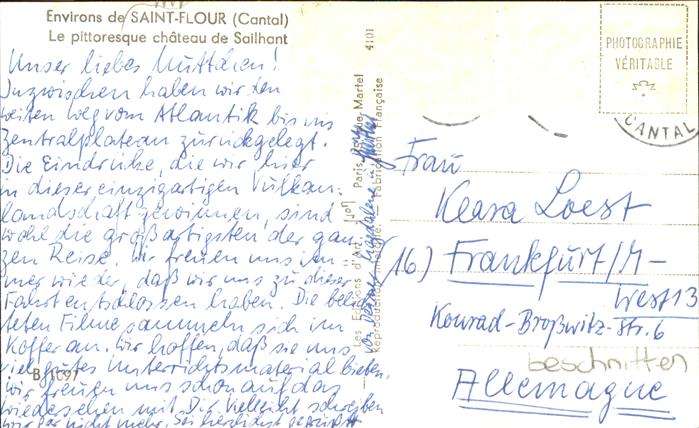 Environs de SAINT-FLOUR (Cantal)
Le pittoresque château de Sailhant
Unser liebes Muttchen!
Inzwischen haben wir den
weiten Weg vom Atlantik bis ins
Zentralplateau zurückgelegt.
Die Eindrücke, die wir hier
in dieser einzigartigen Vulkan-
landschaft gewinnen, sind
wohl die großartigsten der gan-
zen Reise. Wir freuen uns im-
mer wieder, daß wir uns zu dieser
Fahrt entschlossen haben. Die belich-
teten Filme sammeln sich im
Koffer an. Wir hoffen, daß sie uns
viel gutes Unterrichtsmaterial bieten.
Wir freuen uns schon auf das
Wiedersehen mit Dir. Vielleicht schreiben
wir Dir nicht mehr. Sei herzlichst gegrüßt
B. 1097
von Magdalene
Les Editions d'Art Paris Martel
Reproduction Fabrication Française
4101
PHOTOGRAPHIE
VÉRITABLE
CANTAL
Frau
Klara Loest
16) Frankfurt/M-
West 13
Konrad-Broßwitz-Str. 6
beschnitten
Allemagne